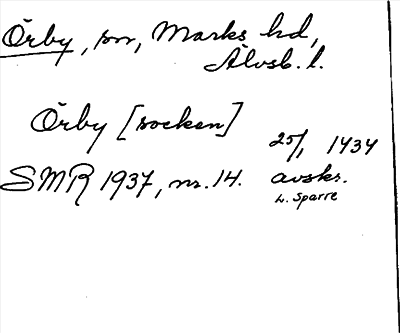 Örby, sn, Marks hd,
Älvsb. l.
Örby [socken]
25/1 1434
SMR 1937, nr. 14. avskr.
L. Sparre